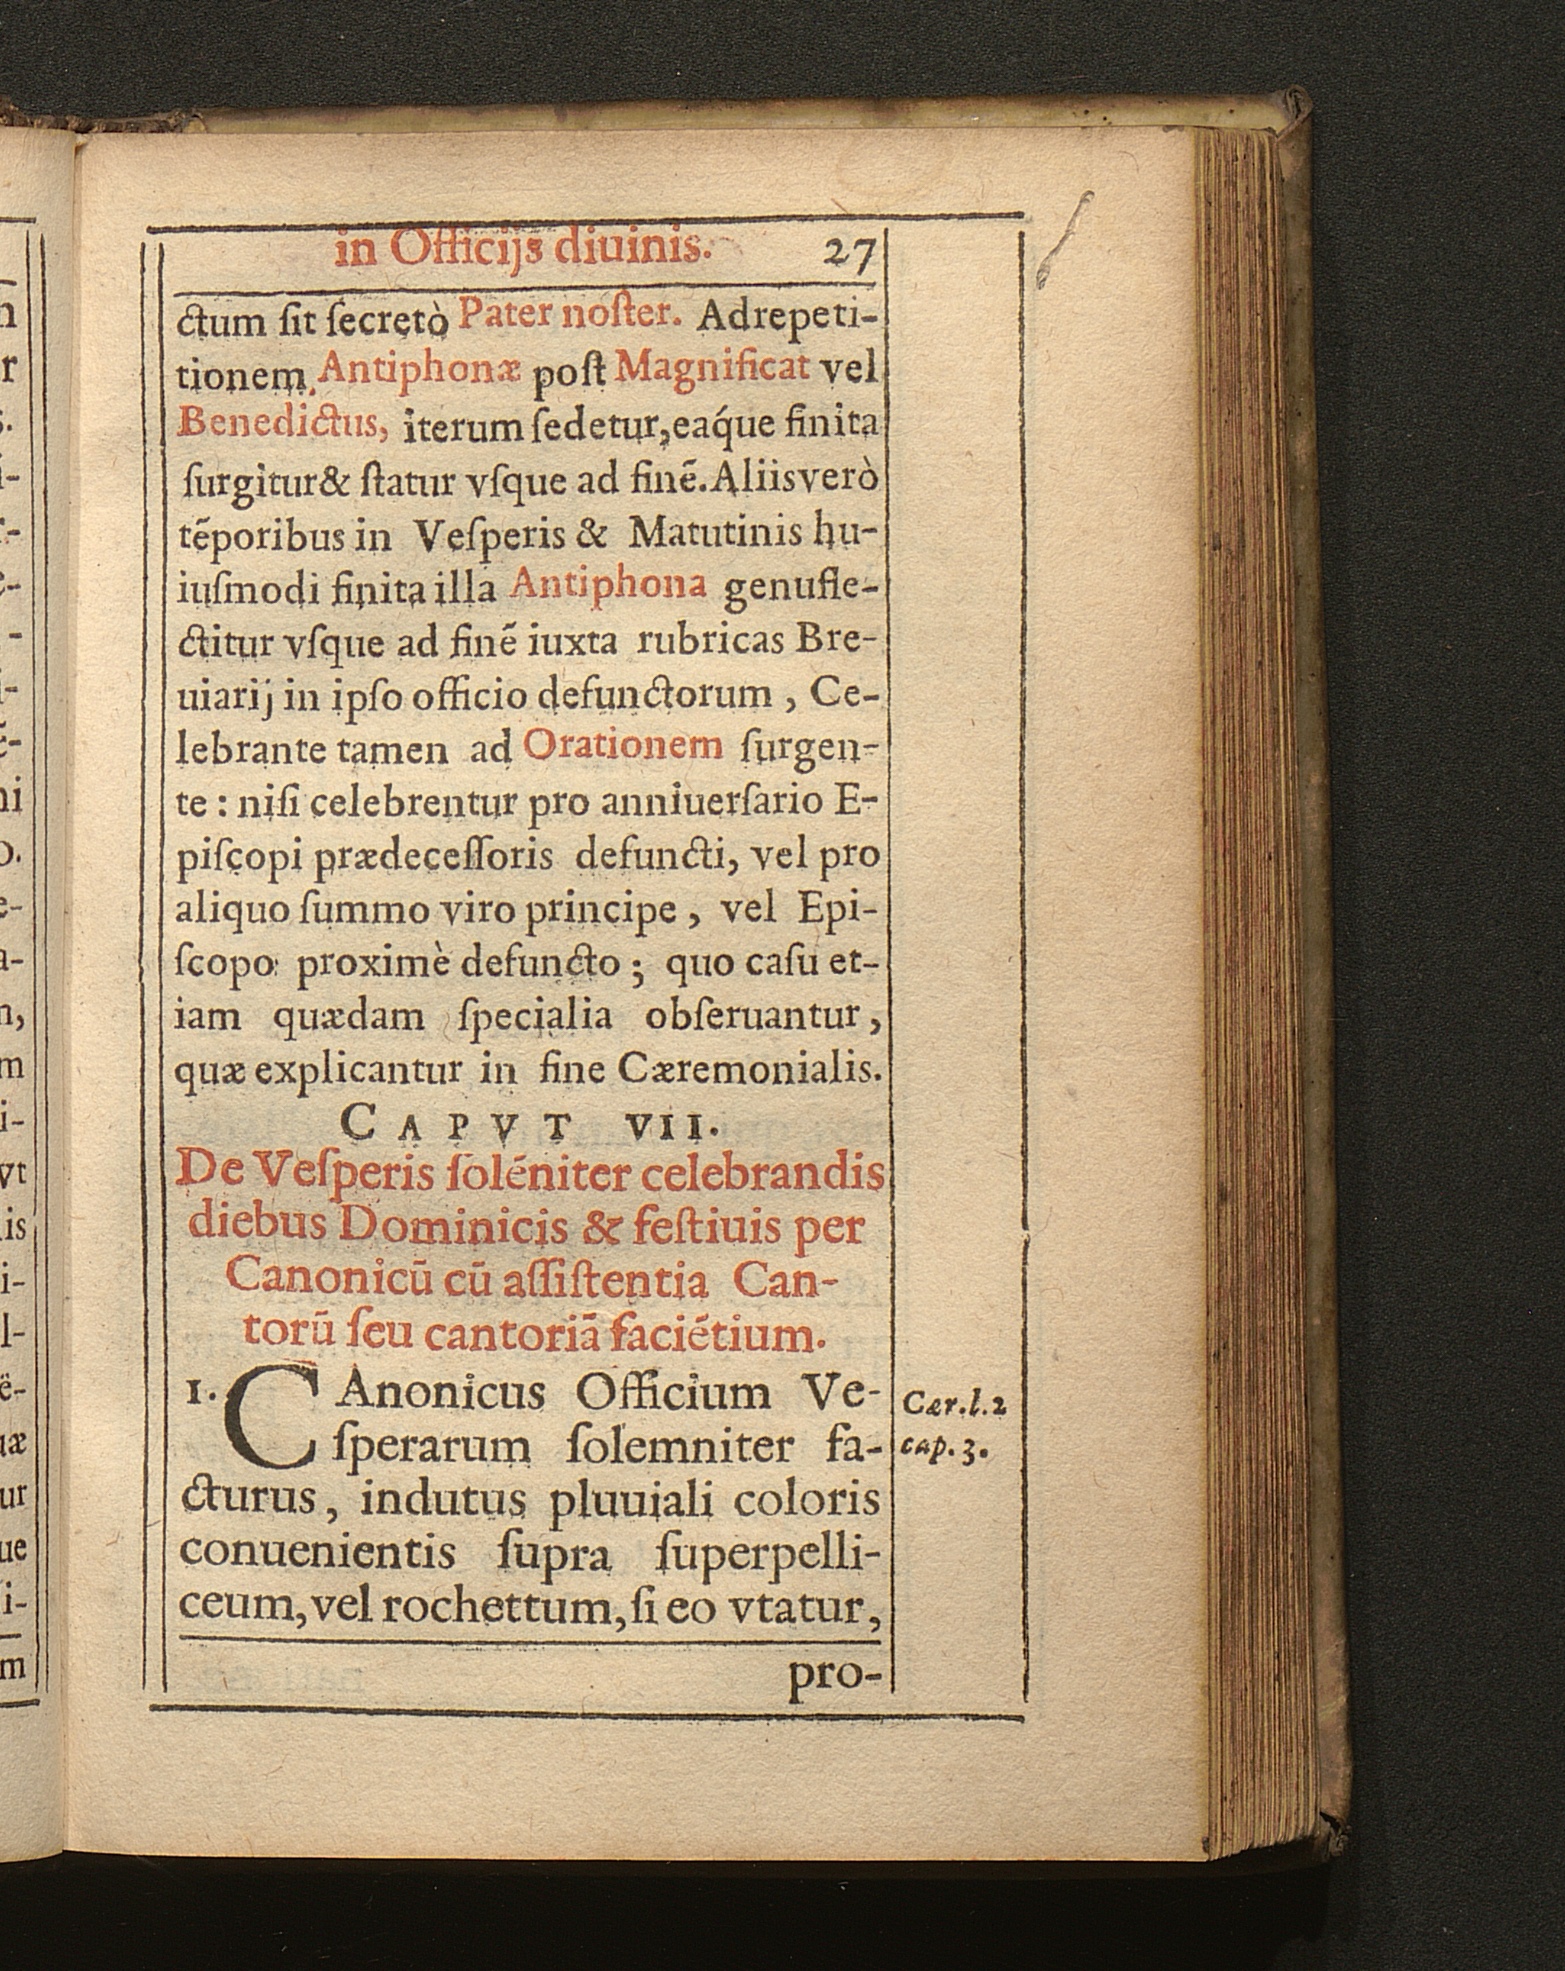 in Officijs diuinis. 27
ctum ſit ſecretò Pater noſter. Ad repeti-
tionem Antiphonæ poſt Magnificat vel
Benedictus, iterum ſedetur, eáque finita
ſurgitur & ſtatur vſque ad finē. Aliis verò
tēporibus in Veſperis & Matutinis hu-
iuſmodi finita illa Antiphona genufle-
ctitur vſque ad finē iuxta rubricas Bre-
uiarij in ipſo officio defunctorum, Ce-
lebrante tamen ad Orationem ſurgen-
te: niſi celebrentur pro anniuerſario E-
piſcopi prædeceſſoris defuncti, vel pro
aliquo ſummo viro principe, vel Epi-
ſcopo proximè defuncto; quo caſu et-
iam quædam ſpecialia obſeruantur,
quæ explicantur in fine Cæremonialis.
CAPVT VII.
De Veſperis ſolēniter celebrandis
diebus Dominicis & feſtiuis per
Canonicū cū aſſiſtentia Can-
torū ſeu cantoriā faciētium.
1. CAnonicus Officium Ve-
ſperarum ſolemniter fa-
cturus, indutus pluuiali coloris
conuenientis ſupra ſuperpelli-
ceum, vel rochettum, ſi eo vtatur,
pro-
Cær.l.2
cap.3.